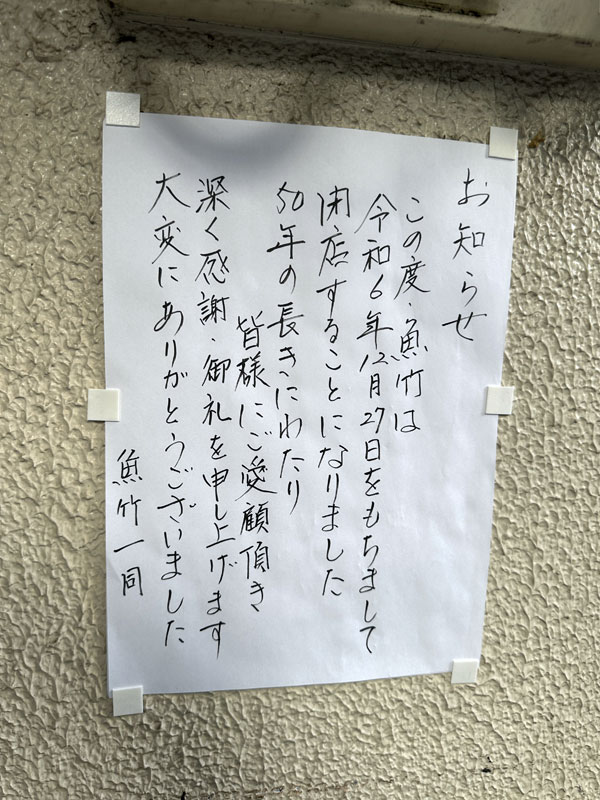 お知らせ
この度、魚竹は
令和6年12月27日をもちまして
閉店することになりました
50年の長きにわたり
皆様にご愛顧頂き
深く感謝、御礼を申し上げます
大変にありがとうございました
魚竹一同